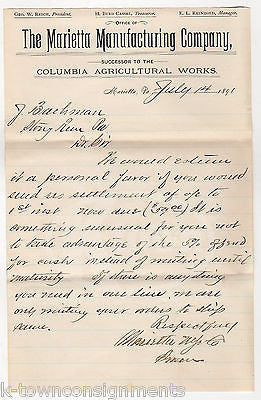 GEO. W. REICH, President. H. BURD CASSEL, Treasurer. E. L. REINHOLD, Manager.
OFFICE OF
The Marietta Manufacturing Company,
SUCCESSOR TO THE
COLUMBIA AGRICULTURAL WORKS.
Marietta, Pa. July 14 1891
J Bachman
Strong Run Pa
Dr. Sir
We would esteem it
a personal favor if you would
send us settlement of a/c up to
1st inst now due It is
something unusual for you not
to take advantage of the 5%
for cash instead of waiting until
maturity If there is anything
you need in our line, we are
only waiting your orders to ship
same.
Respectfully
Marietta Mfg Co
k-townconsignments